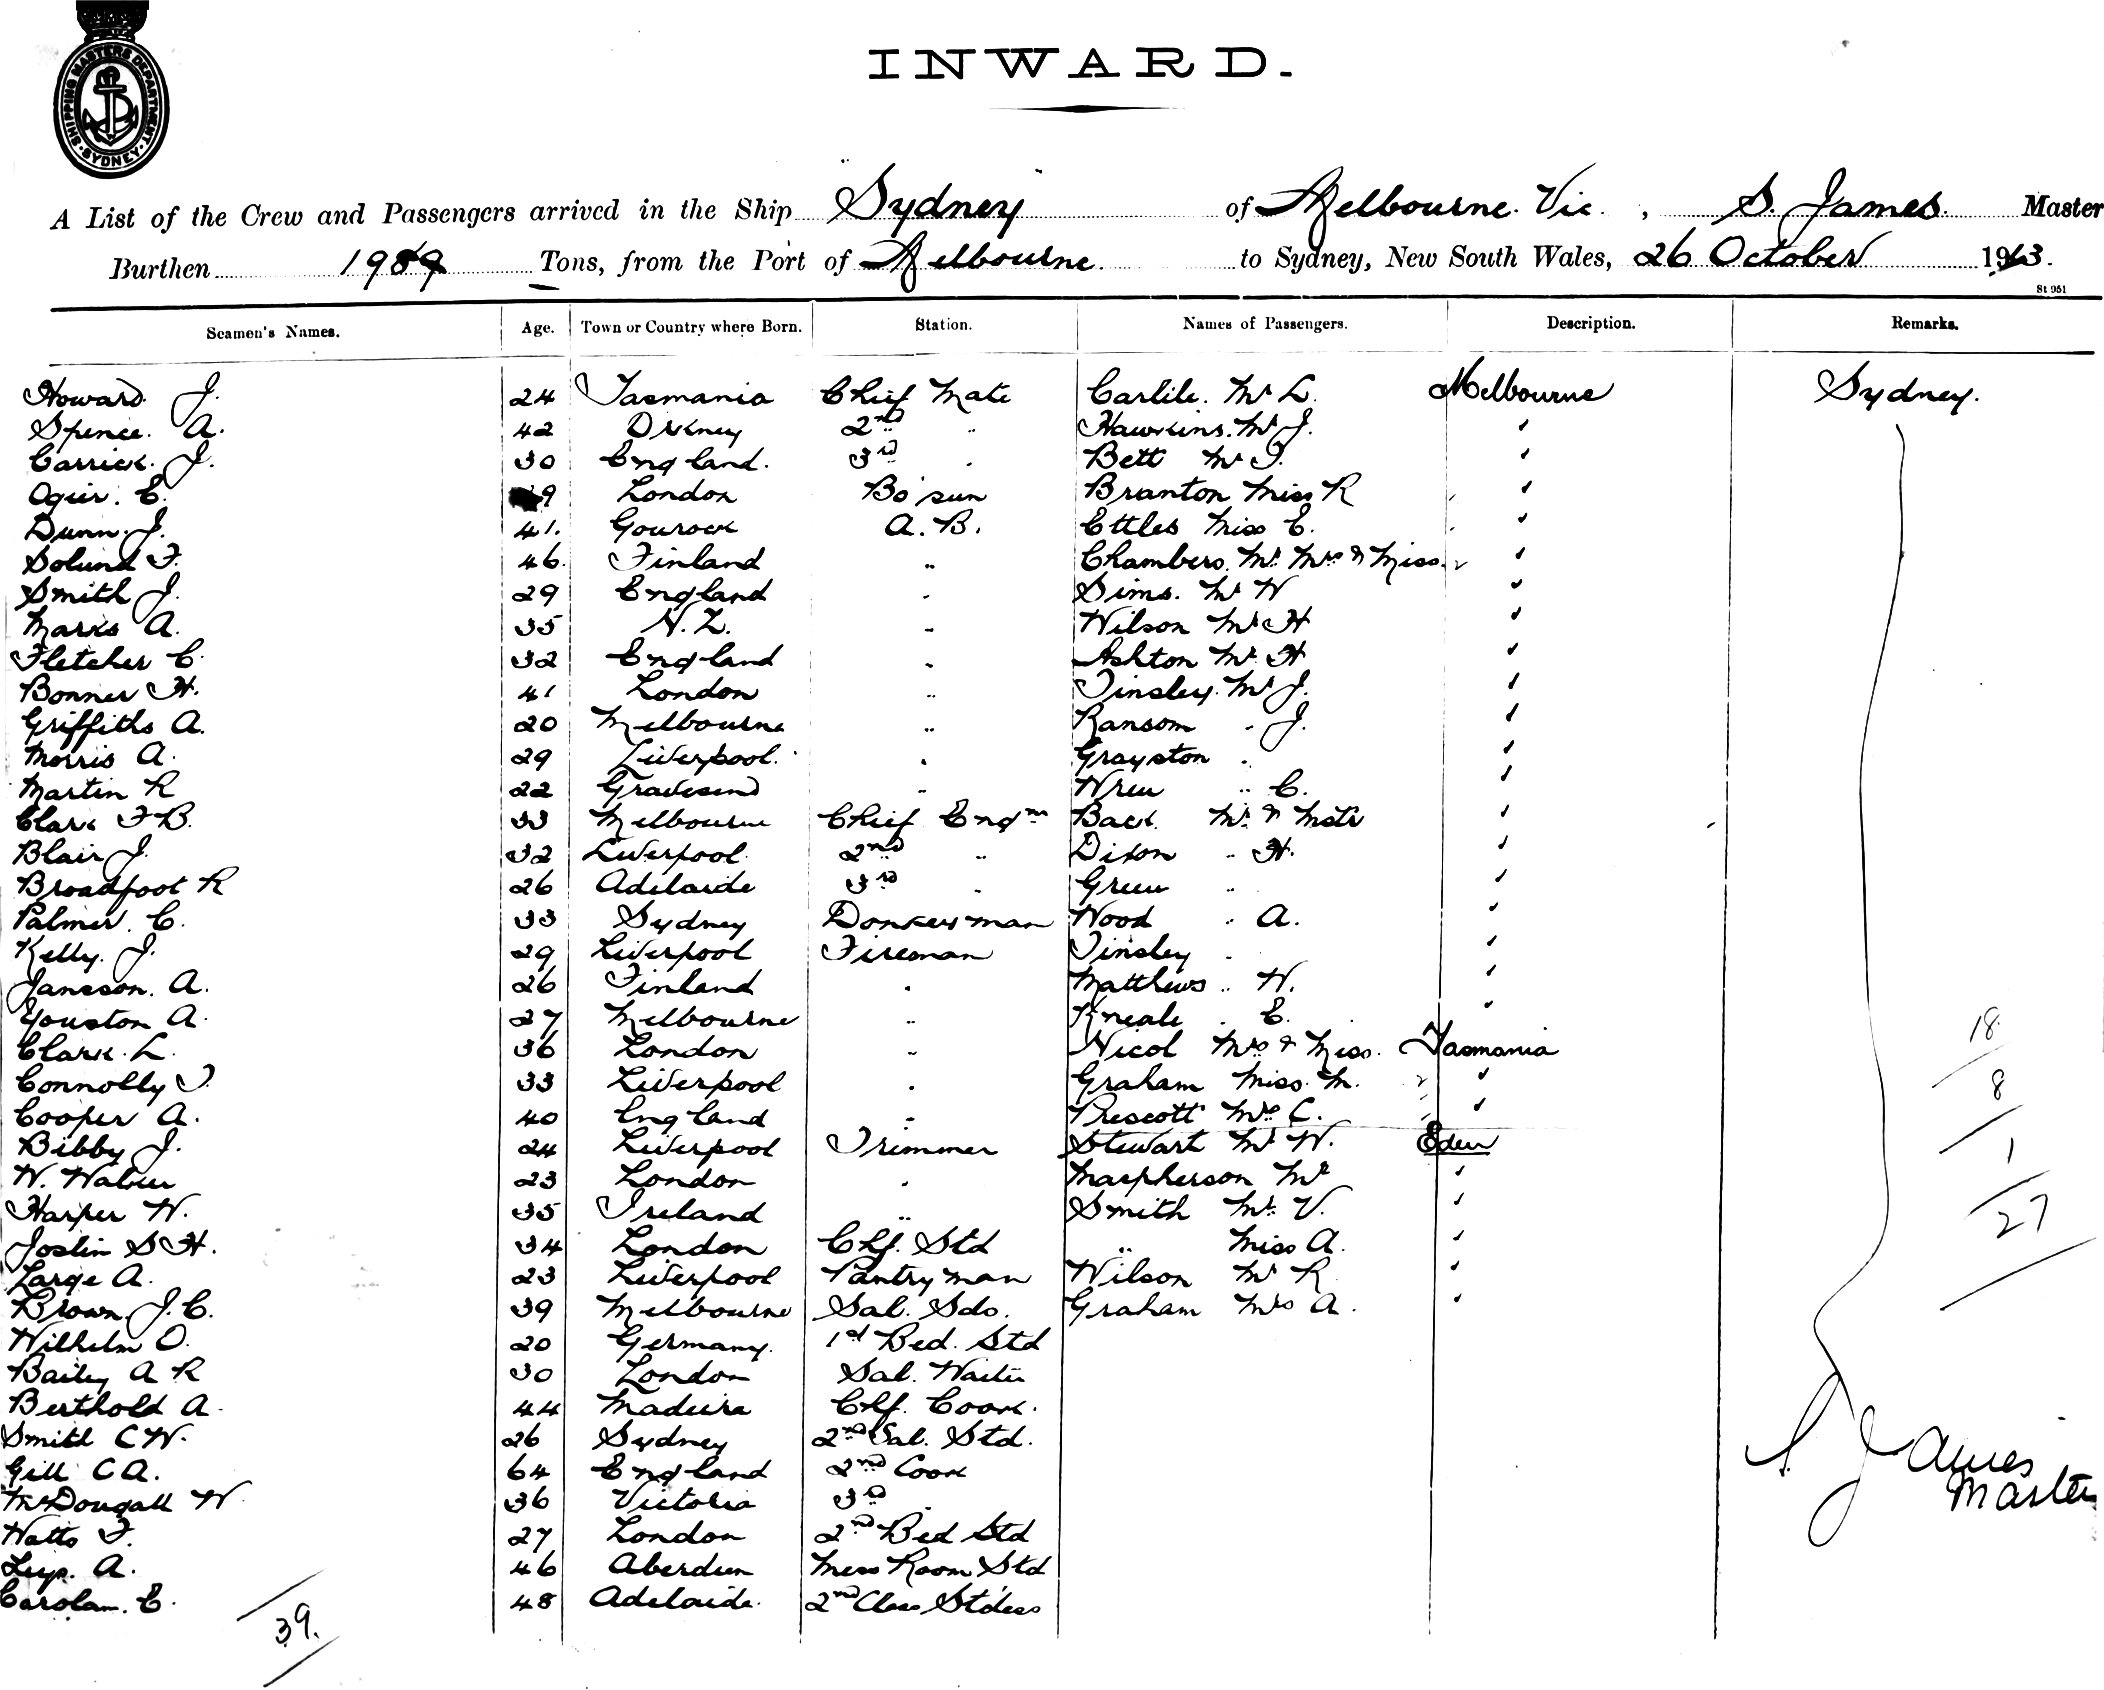 SHIPPING MASTERS DEPARTMENT. SYDNEY
INWARD.
A List of the Crew and Passengers arrived in the Ship Sydney of Melbourne. Vic. , S. James. Master
Burthen 1989 Tons, from the Port of Melbourne. to Sydney, New South Wales, 26 October 1913.
St 951
Seamen's Names. Age. Town or Country where Born. Station. Names of Passengers. Description. Remarks.
Howard J. 24 Tasmania Chief Mate Carlile. Mr L. Melbourne Sydney.
Spence. A. 42 Orkney 2nd " Hawkins. Mr J. "
Carrick. J. 30 England. 3rd " Bett Mr T. "
Ogier. E. 9 London Bo'sun Branton Miss R "
Dunn. J. 41. Gourock A. B. Ettles Miss E. "
Solund F. 46. Finland " Chambers. Mr. Mrs & Miss. "
Smith J. 29 England " Sims. Mr W "
Marks A. 35 N. Z. " Wilson Mr H "
Fletcher C. 32 England " Ashton Mr. H "
Bonner H. 41 London " Tinsley. Mr J. "
Griffiths A. 20 Melbourne " Ransom " J. "
Morris A. 29 Liverpool. " Grayston " "
Martin R 22 Gravesend " Wren " C. "
Clark F B. 33 Melbourne Chief Engnr Back Mr & Mstr "
Blair J. 32 Liverpool 2nd " Dixon " H. "
Broadfoot R 26 Adelaide 3rd " Green " "
Palmer. C. 33 Sydney Donkeyman Wood " A. "
Kelly. J. 29 Liverpool Fireman Tinsley " "
Jansson. A. 26 Finland " Matthews " W. "
Youston A. 27 Melbourne " Kneale " E. "
Clark. L. 36 London " Nicol Mrs & Miss. Tasmania 18
Connolly T. 33 Liverpool " Graham Miss. M. " 8
Cooper A. 40 England " Prescott Mrs C. "
Bibby J. 24 Liverpool Trimmer Stewart Mr W. Eden 1
W. Walker 23 London " Macpherson Mr "
Harper W. 35 Ireland " Smith Mr. V. " 27
Joslin S H. 34 London Chf. Std " Miss A. "
Large A. 23 Liverpool Pantryman Wilson Mr R "
Brown J. C. 39 Melbourne Sal. Sds. Graham Mrs A. "
Wilhelm O. 20 Germany. 1st Bed. Std
Bailey A R 30 London Sal. Waiter
Berthold A 44 Madeira Chf. Cook.
Smith C W. 26 Sydney 2nd Sal. Std.
Gill C A. 64 England 2nd Cook S. James
McDougall W 36 Victoria 3rd " Master
Watts F. 27 London 2nd Bed Std
A. 46 Aberdeen Mess Room Std
Carolan. E. 48 Adelaide. 2nd Class Stdess
39.